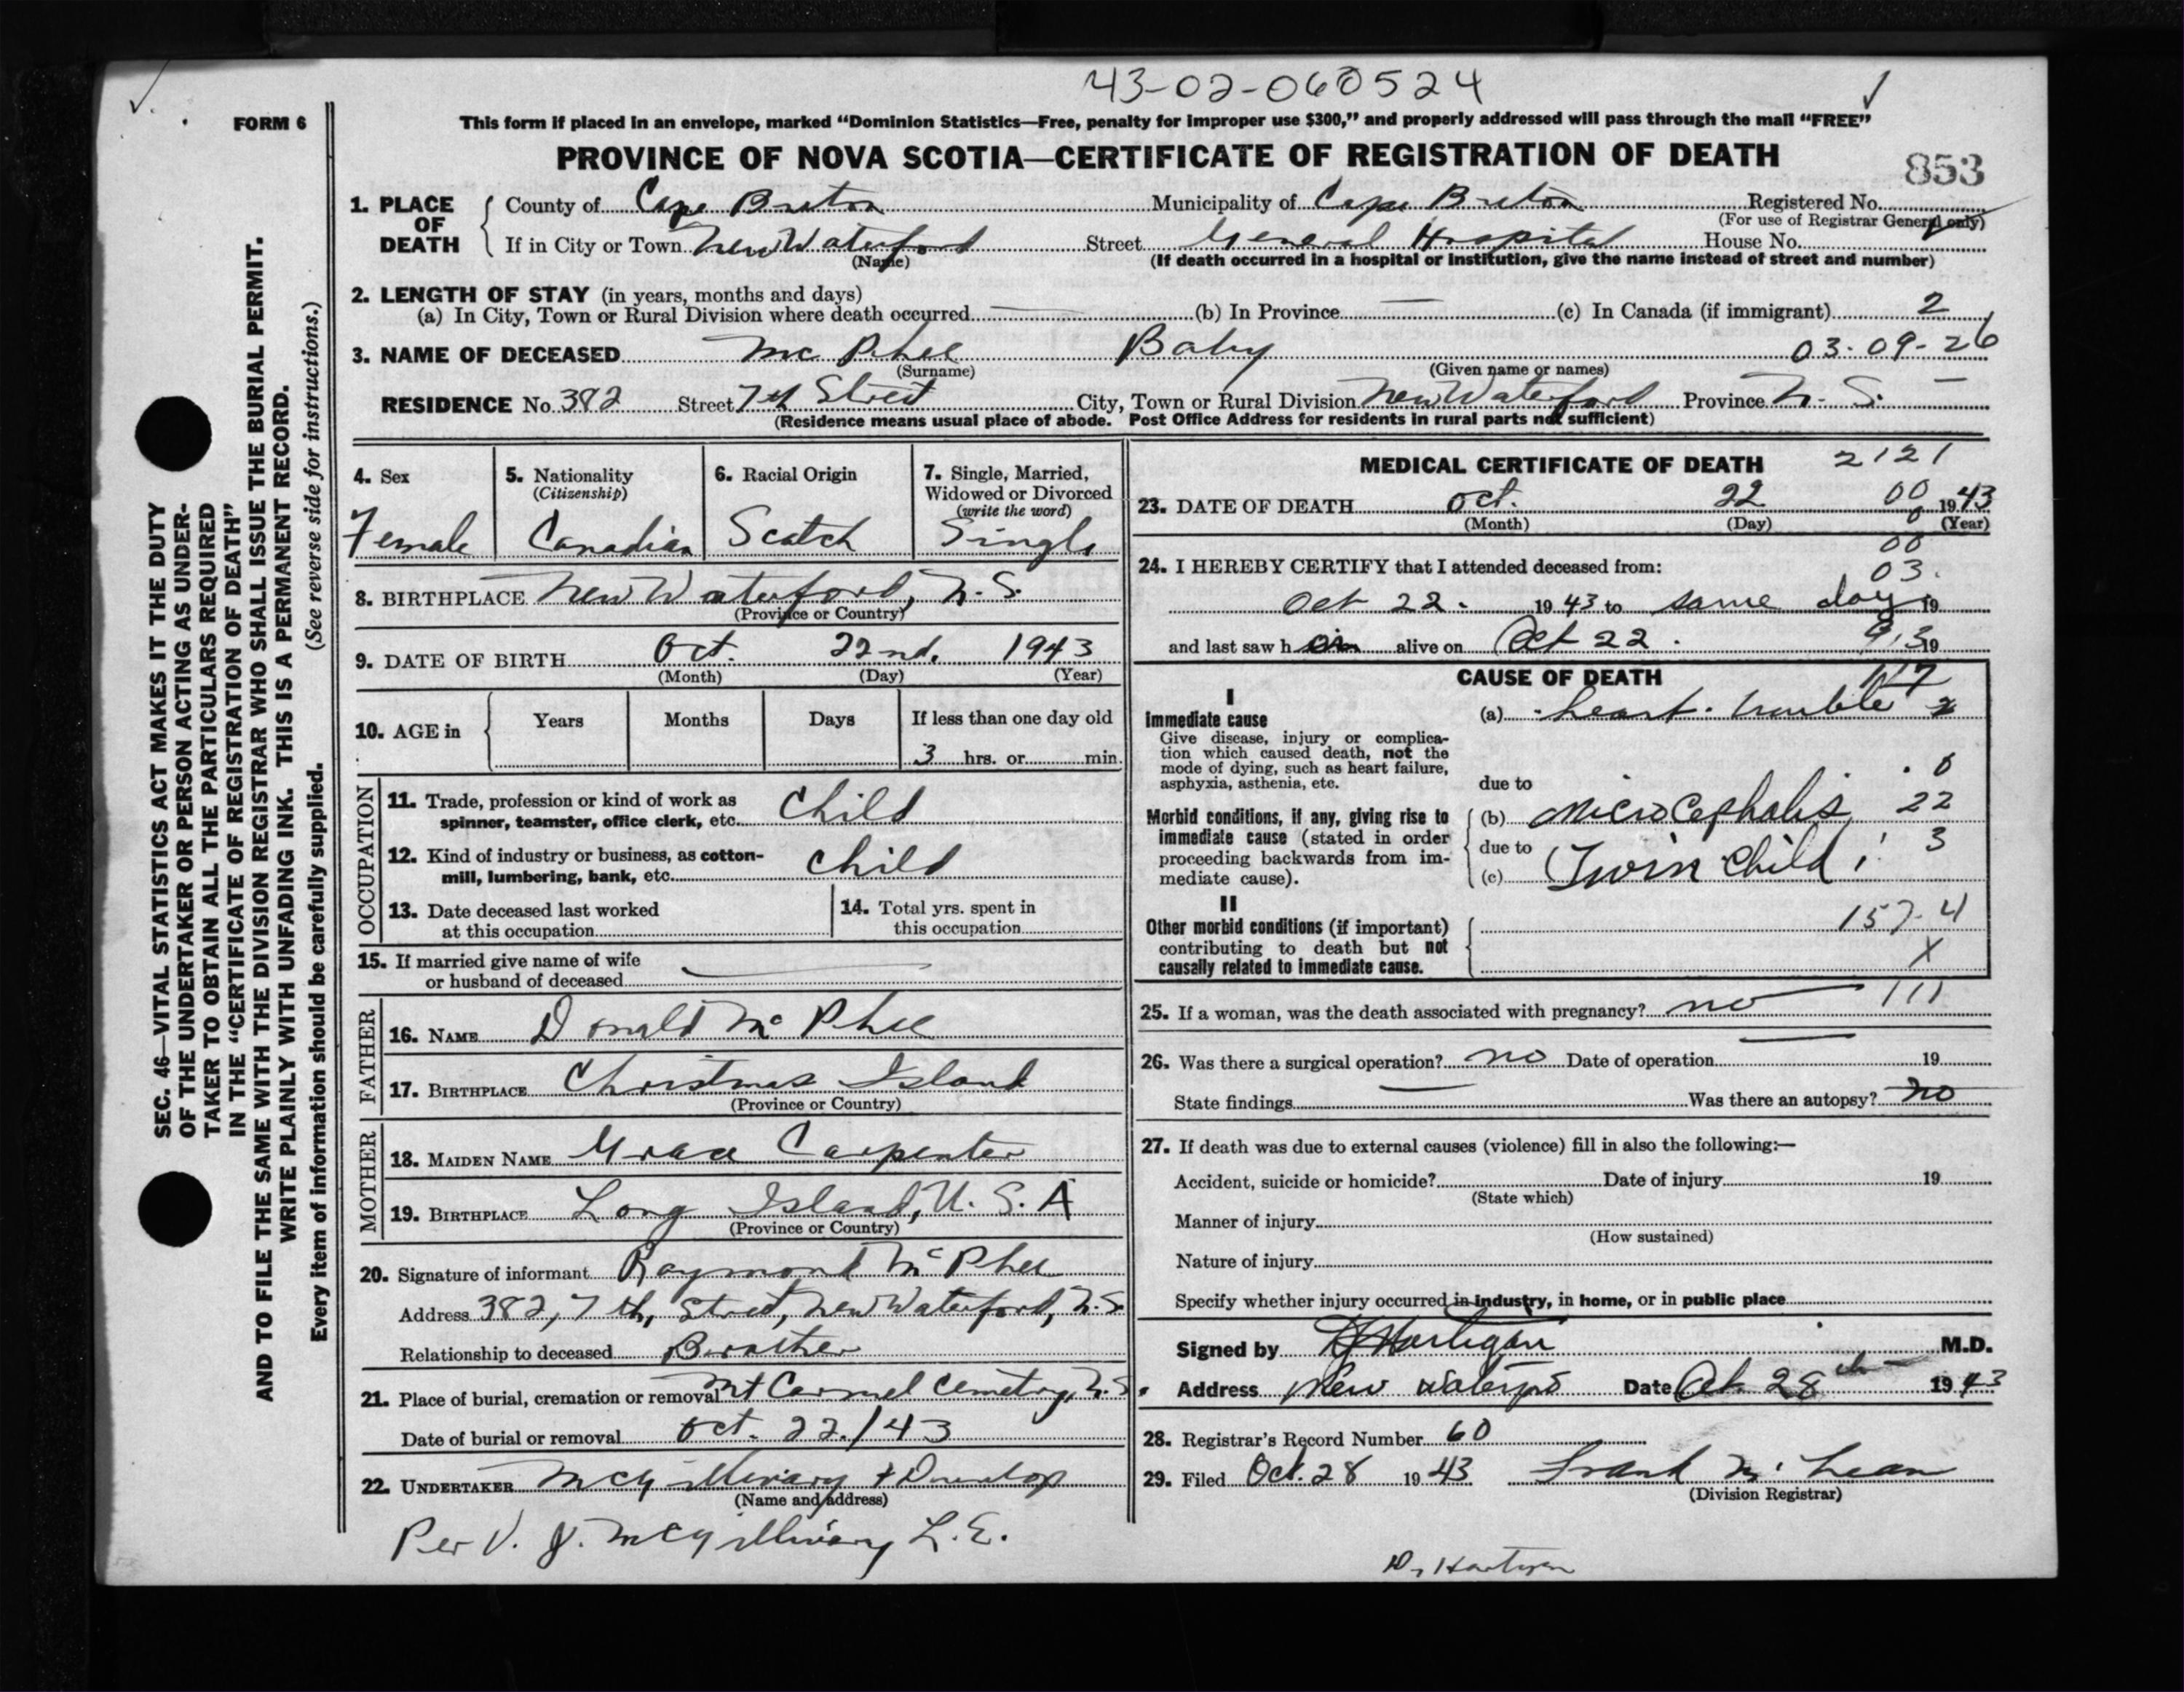 43-02-060524
FORM 6
This form if placed in an envelope, marked "Dominion Statistics—Free, penalty for improper use $300," and properly addressed will pass through the mail "FREE"
PROVINCE OF NOVA SCOTIA—CERTIFICATE OF REGISTRATION OF DEATH
853
1. PLACE OF DEATH
County of Cape Breton Municipality of Cape Breton Registered No.
(For use of Registrar General only)
If in City or Town New Waterford Street General Hospital House No.
(Name) (If death occurred in a hospital or institution, give the name instead of street and number)
2. LENGTH OF STAY (in years, months and days)
(a) In City, Town or Rural Division where death occurred — (b) In Province — (c) In Canada (if immigrant) 2
3. NAME OF DECEASED Mc Phee Baby 03-09-26
(Surname) (Given name or names)
RESIDENCE No. 382 Street 7th Street City, Town or Rural Division New Waterford Province N. S. —
(Residence means usual place of abode. Post Office Address for residents in rural parts not sufficient)
SEC. 46—VITAL STATISTICS ACT MAKES IT THE DUTY
OF THE UNDERTAKER OR PERSON ACTING AS UNDER-
TAKER TO OBTAIN ALL THE PARTICULARS REQUIRED
IN THE "CERTIFICATE OF REGISTRATION OF DEATH"
AND TO FILE THE SAME WITH THE DIVISION REGISTRAR WHO SHALL ISSUE THE BURIAL PERMIT.
WRITE PLAINLY WITH UNFADING INK. THIS IS A PERMANENT RECORD.
Every item of information should be carefully supplied. (See reverse side for instructions.)
4. Sex
Female
5. Nationality
(Citizenship)
Canadian
6. Racial Origin
Scotch
7. Single, Married,
Widowed or Divorced
(write the word)
Single
8. BIRTHPLACE New Waterford, N. S.
(Province or Country)
9. DATE OF BIRTH Oct. 22nd. 1943
(Month) (Day) (Year)
10. AGE in
Years Months Days If less than one day old
3 hrs. or min.
OCCUPATION
11. Trade, profession or kind of work as
spinner, teamster, office clerk, etc. Child
12. Kind of industry or business, as cotton-
mill, lumbering, bank, etc. Child
13. Date deceased last worked
at this occupation
14. Total yrs. spent in
this occupation
15. If married give name of wife
or husband of deceased —
FATHER
16. NAME Donald Mc Phee
17. BIRTHPLACE Christmas Island
(Province or Country)
MOTHER
18. MAIDEN NAME Grace Carpenter
19. BIRTHPLACE Long Island, U. S. A
(Province or Country)
20. Signature of informant Raymond Mc Phee
Address 382, 7th, Street, New Waterford, N.S
Relationship to deceased Brother
21. Place of burial, cremation or removal Mt Carmel Cemetry, N.S.
Date of burial or removal Oct. 22./43
22. UNDERTAKER McGillivary & Dunlop
(Name and address)
Per V. J. McGillivary L. E.
MEDICAL CERTIFICATE OF DEATH 2121
23. DATE OF DEATH Oct. 22 00 1943
(Month) (Day) (Year)
00
24. I HEREBY CERTIFY that I attended deceased from: 03.
Oct 22. 1943 to same day 19
and last saw h alive on Oct 22. 19
CAUSE OF DEATH
I
Immediate cause
Give disease, injury or complica-
tion which caused death, not the
mode of dying, such as heart failure,
asphyxia, asthenia, etc.
(a) heart trouble
due to
Morbid conditions, if any, giving rise to
immediate cause (stated in order
proceeding backwards from im-
mediate cause).
(b) Microcephalis 22
due to 3
(c) Twin Child
II
Other morbid conditions (if important)
contributing to death but not
causally related to immediate cause.
157-4
X
25. If a woman, was the death associated with pregnancy? no 111
26. Was there a surgical operation? no Date of operation — 19
State findings — Was there an autopsy? no
27. If death was due to external causes (violence) fill in also the following:—
Accident, suicide or homicide? Date of injury 19
(State which)
Manner of injury
(How sustained)
Nature of injury
Specify whether injury occurred in industry, in home, or in public place
Signed by Hartigan M.D.
Address New Waterford Date Oct. 28th 1943
28. Registrar's Record Number 60
29. Filed Oct. 28 1943 Frank Mc Lean
(Division Registrar)
Dr Hartigan